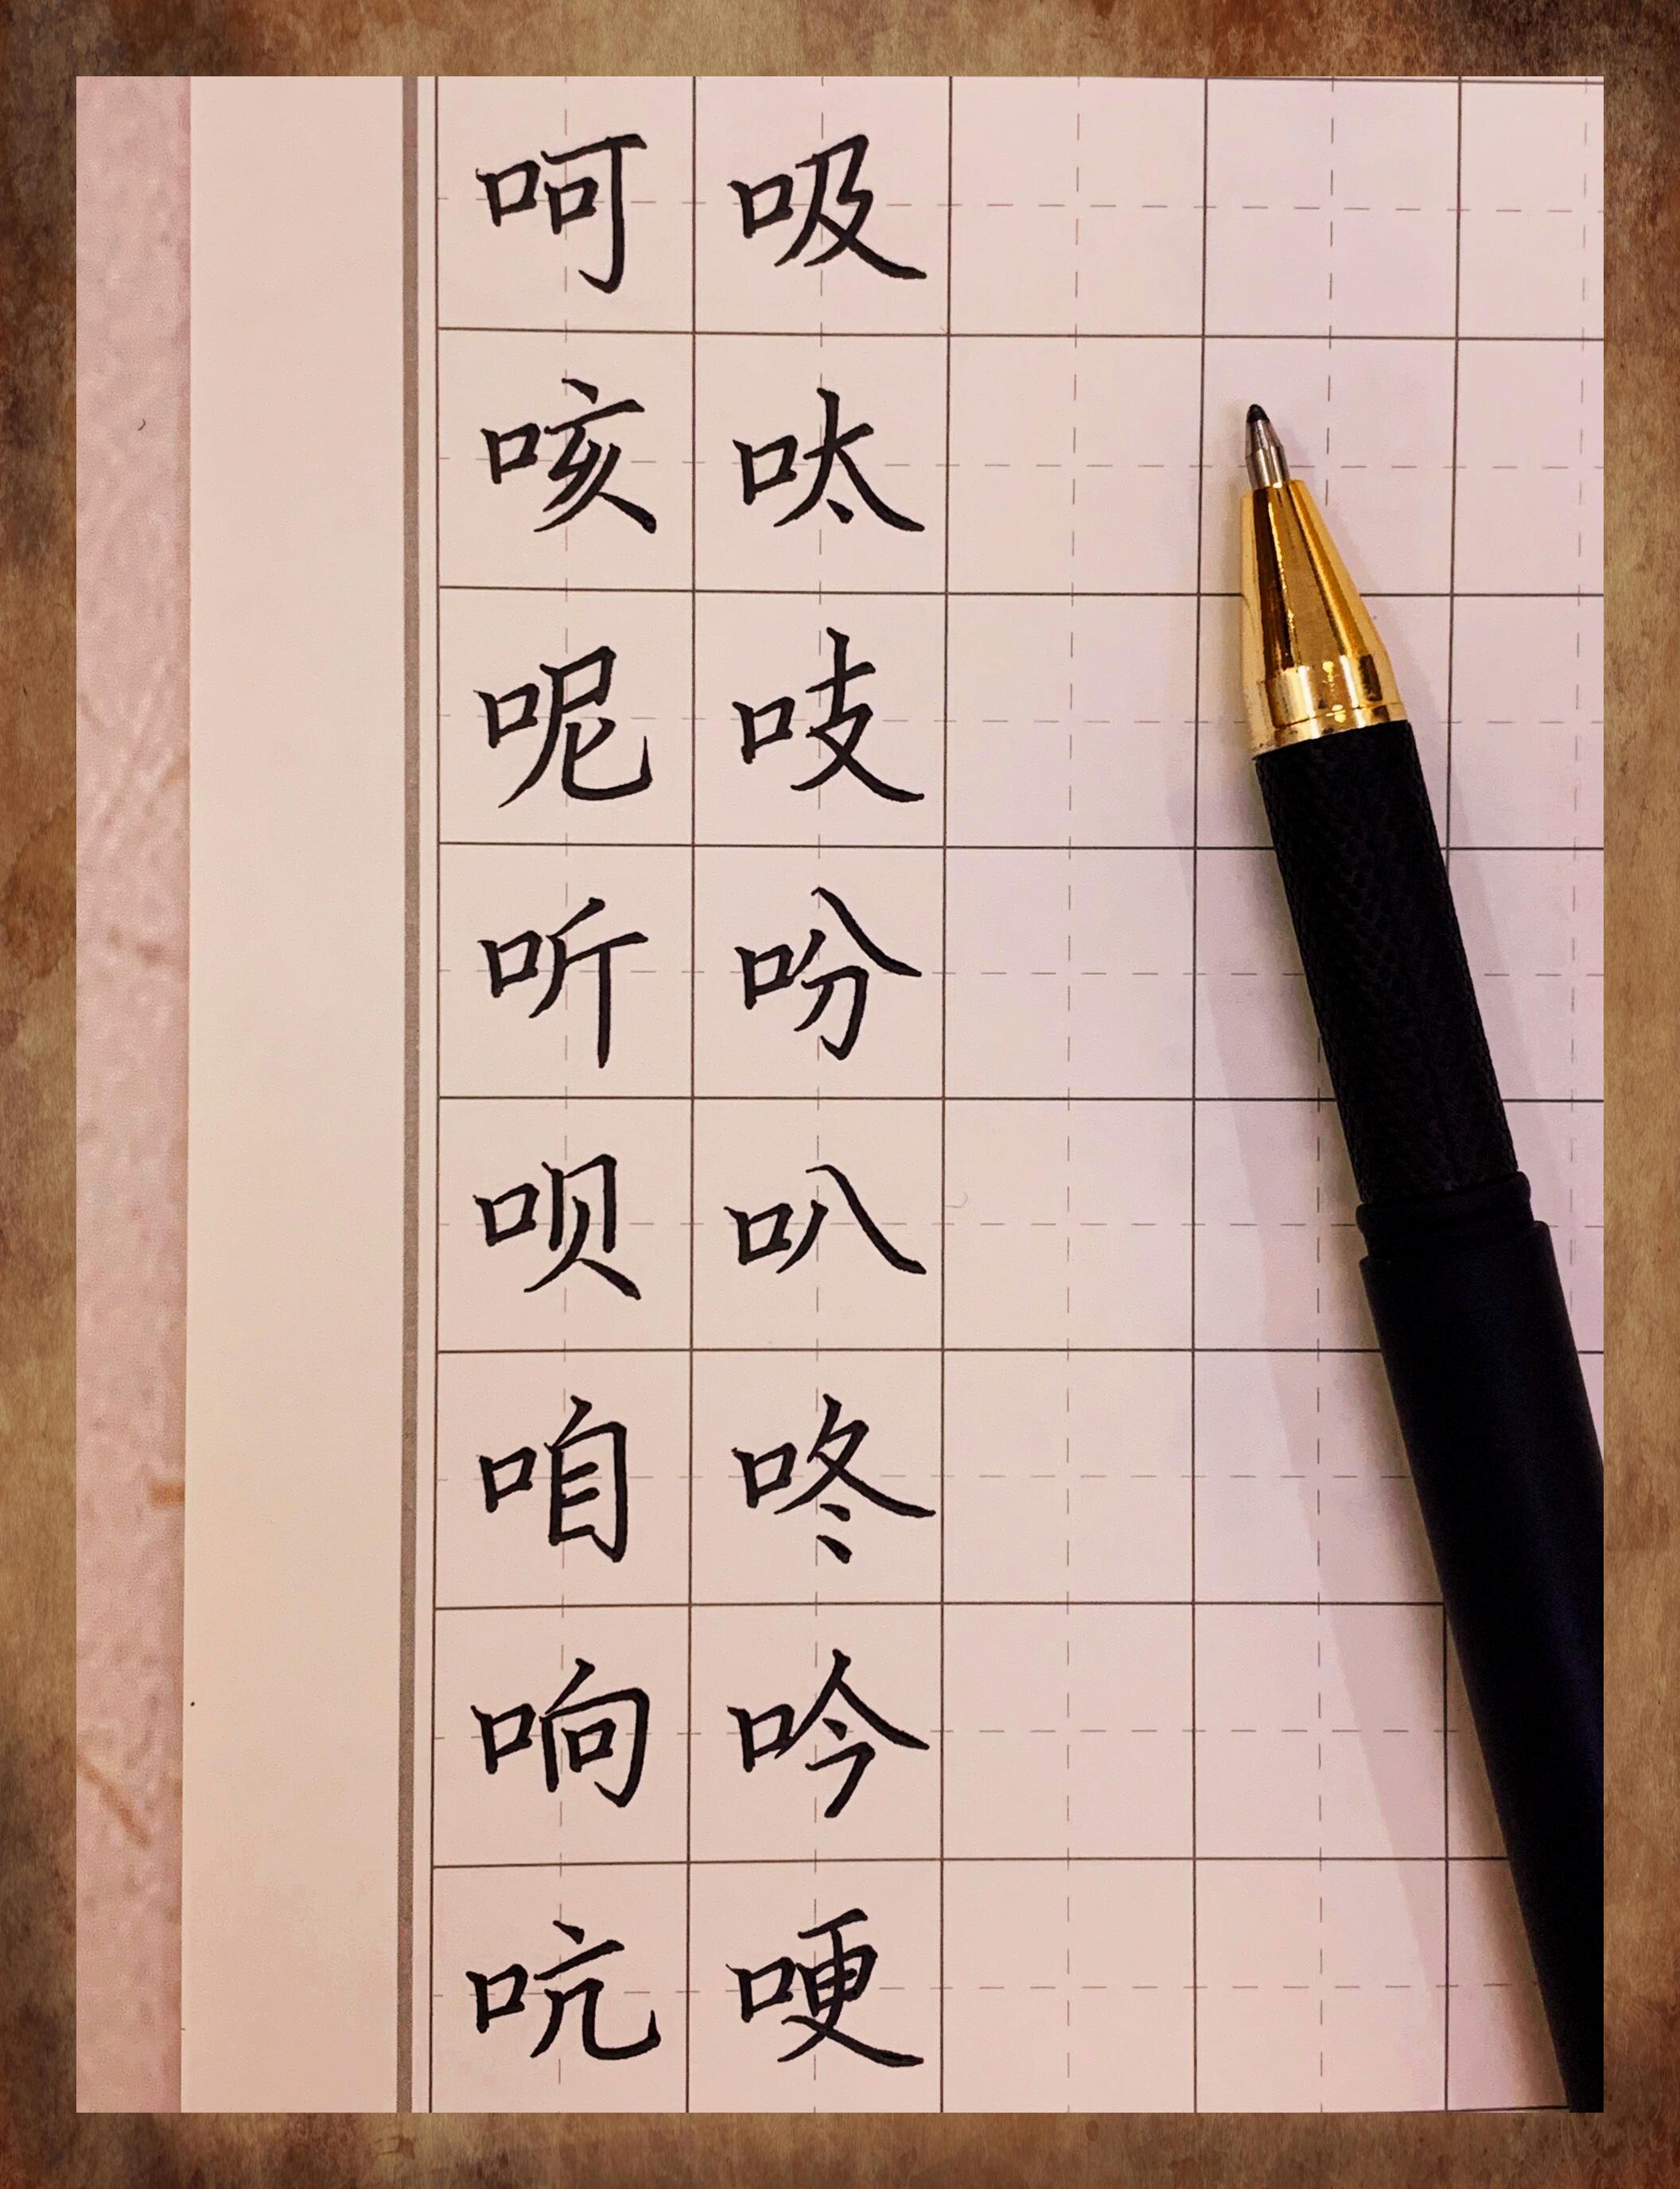 呵吸
咳呔
呢吱
听吩
呗叭
咱咚
响吟
吭哽